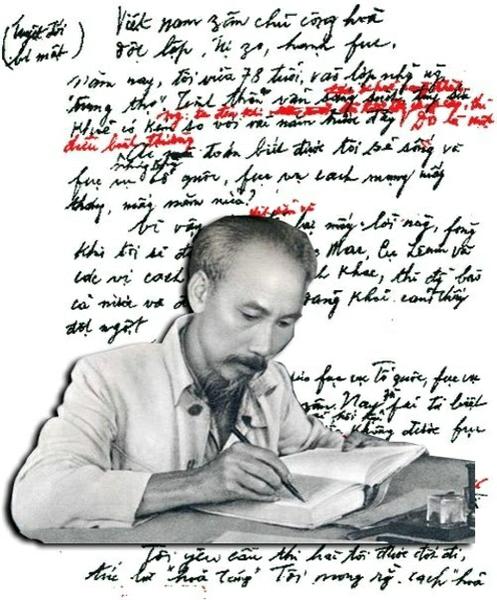 (Tuyệt đối
bí mật)
Việt nam zân chủ cộng hoà
độc lập, tự zo, hạnh fúc.
Năm nay, tôi vừa 78 tuổi, vào lớp những
"trung thọ". Tinh thần vẫn
khuẻ có kém so với vài năm trước đây. Đó là một
điều bình thường.
toán biết được tôi sẽ sống và
fục vụ tổ quốc, fục vụ cách mạng mấy
tháng, mấy năm nữa?
Vì vậy, lại mấy lời này, fòng
khi tôi sẽ đi Mác, Cụ Lênin và
các vị cách khác, thì đồng bào
cả nước và đảng khỏi cảm thấy
đột ngột
fục vụ Tổ quốc, fục vụ
Nay zù fải từ biệt
không được fục
Tôi yêu cầu thi hài tôi được đốt đi,
tức là "hoả táng". Tôi mong rằng cách "hoả